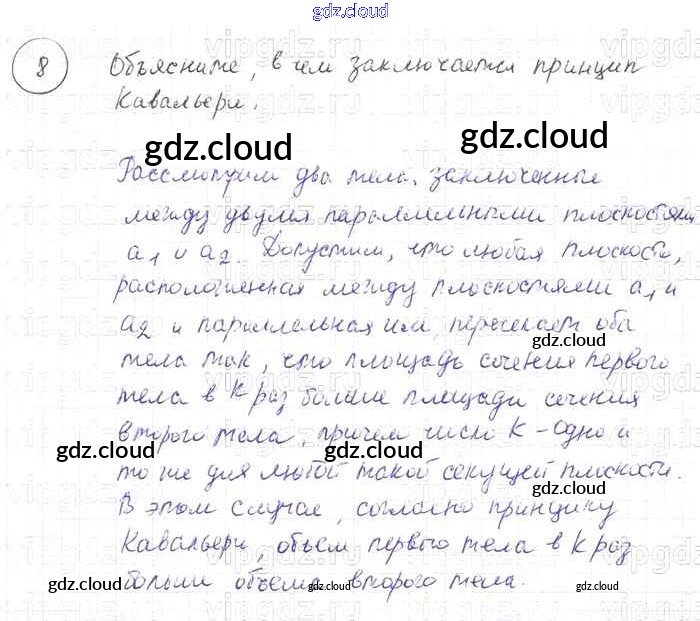 gdz.cloud
8 Объясните, в чем заключается принцип
Кавальери.
gdz.cloud
gdz.cloud
Рассмотрим два тела, заключенные
между двумя параллельными плоскостями
a1 и a2. Допустим, что любая плоскость,
gdz.cloud
gdz.cloud
расположенная между плоскостями a1 и
a2 и параллельная им, пересекает оба
gdz.cloud
тела так, что площадь сечения первого
тела в K раз больше площади сечения
второго тела, причем число K - одно и
gdz.cloud
gdz.cloud
то же для любой такой секущей плоскости.
gdz.cloud
В этом случае, согласно принципу
Кавальери, объем первого тела в K раз
больше объема второго тела.
gdz.cloud
gdz.cloud
gdz.cloud